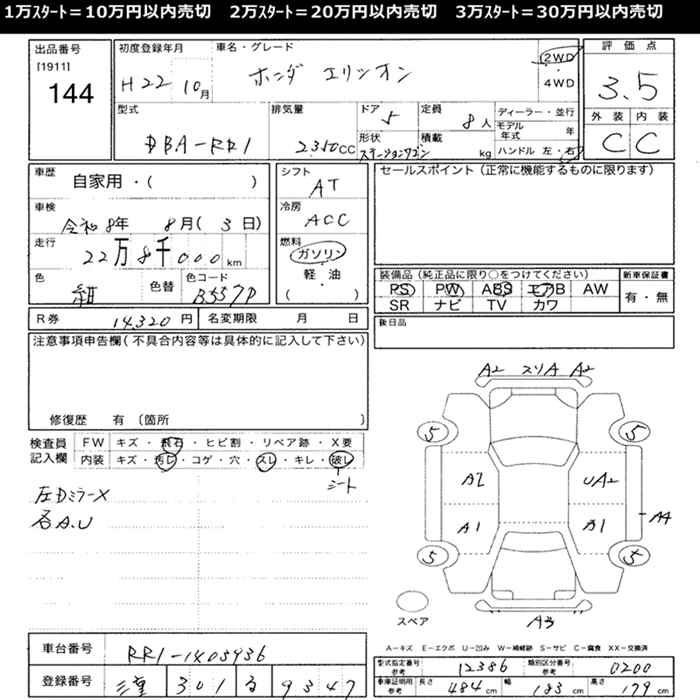 1万ｽﾀｰﾄ＝10万円以内売切　2万ｽﾀｰﾄ＝20万円以内売切　3万ｽﾀｰﾄ＝30万円以内売切
出品番号
[1911]
144
初度登録年月
H22 10月
車名・グレード
ホンダ エリシオン
2WD
4WD
評価点
3.5
外装 内装
C C
型式
DBA-RR1
排気量
2350CC
ドア
5
定員
8人
形状
ステーションワゴン
積載
kg
ディーラー・並行
モデル年式 年
ハンドル 左・右
車歴
自家用・( )
車検
令和8年 8月(3日)
走行
22万8千000km
色
紺
色替
色コード
B557P
シフト
AT
冷房
ACC
燃料
ガソリン
軽・油
( )
セールスポイント (正常に機能するものに限ります)
装備品 (純正品に限り○をつけてください)
PS PW ABS エアB AW
SR ナビ TV カワ
新車保証書
有・無
R券 14,320円
名変期限 月 日
後日品
注意事項申告欄(不具合内容等は具体的に記入して下さい)
修復歴 有 (箇所 )
検査員記入欄
FW キズ・飛石・ヒビ割・リペア跡・X要
内装 キズ・汚レ・コゲ・穴・スレ・キレ・破レ
シート
左DミラーX
各A.U
A2 スリA A2
5 5
A2 UA2
A1 A1 A4
5 5
スペア
A3
A-キズ E-エクボ U-凹み W-補修跡 S-サビ C-腐食 XX-交換済
車台番号
RR1-1403936
登録番号
三重 301 る 9347
型式指定番号
参考
12386
類別区分番号
参考
0200
車庫証明用
参考
長さ 484cm 幅 183cm 高さ 179cm